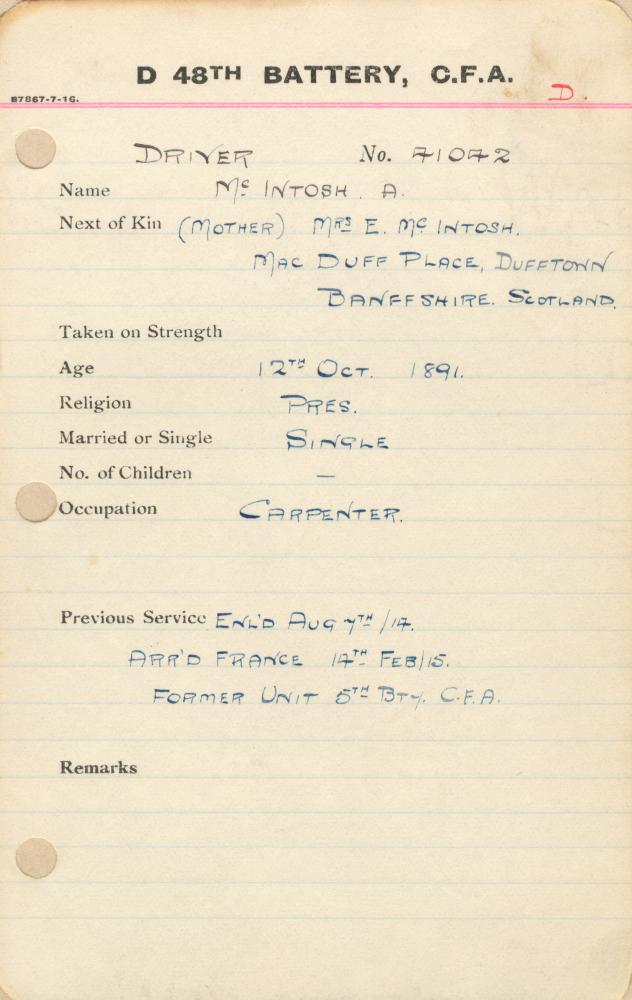 D 48TH BATTERY, C.F.A.
B7867-7-16.
D.
DRIVER No. 41042
Name Mc INTOSH. A.
Next of Kin (MOTHER) MRS E. Mc INTOSH.
MAC DUFF PLACE, DUFFTOWN
BANFFSHIRE. SCOTLAND.
Taken on Strength
Age 12TH OCT. 1891.
Religion PRES.
Married or Single SINGLE
No. of Children —
Occupation CARPENTER.
Previous Service ENL'D AUG 7TH /14.
ARR'D FRANCE 14TH FEB/15.
FORMER UNIT 5TH BTY. C.F.A.
Remarks